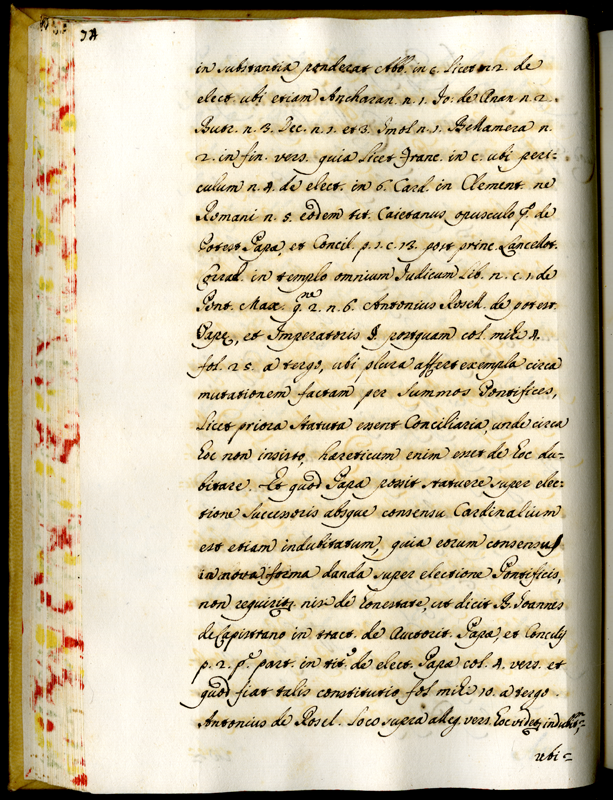 34
in substantia ponderat Abb. in c. licet n. 2. de
elect. ubi etiam Ancharan. n. 1. Jo. de Anan n. 2.
Butr. n. 3. Dec. n. 1. et 3. Imol n. 1. Bellamera n.
2. in fin. vers. quia licet Franc. in c. ubi peri-
culum n. 4. de elect. in 6. Card. in Clement. ne
Romani n. 5. eodem tit. Caietanus opusculo p.º de
Potest. Papæ, et Concil. p. 1. c. 13. post princ. Lancellot.
Corrad. in templo omnium Iudicum lib. n. c. 1. de
Pont. Max. q.ne 2. n. 6. Antonius Rosell. de potest.
Papæ, et Imperatoris §. postquam col. mihi 4.
fol. 25. a tergo, ubi plura affert exempla circa
mutationem factam per Summos Pontifices,
licet priora statuta essent Conciliaria, unde circa
hoc non insisto, hæreticum enim esset de hoc du-
bitare. Et quod Papa possit statuere super elec-
tione successoris absque consensu Cardinalium
est etiam indubitatum, quia eorum consensus
in nova forma danda super electione Pontificis,
non requiritr nisi de honestate, ut dicit B. Joannes
de Capistrano in tract. de Auctorit. Papæ, et Concilij
p. 2. p.æ part. in tit.º de elect. Papæ col. 4. vers. et
quod fiat talis constitutio fol mihi 10. a tergo.
Antonius de Rosel. loco supra alleg. vers. hoc videtr indubit,
ubi-